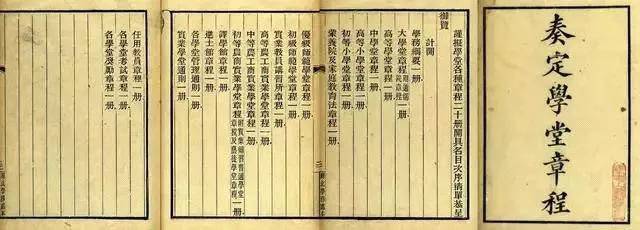 奏定學堂章程
謹擬學堂各種章程二十册開具名目次序清單恭呈
御覽
計開
學務綱要一册
大學堂章程附通儒院章程一册
高等學堂章程一册
中學堂章程一册
高等小學堂章程一册
初等小學堂章程一册
蒙養院及家庭教育法章程一册
優級師範學堂章程一册
初級師範學堂章程一册
實業教員講習所章程一册
高等農工商實業學堂章程一册
中等農工商實業學堂章程一册
初等農商實業學堂章程附實業補習普通學堂章程及藝徒學堂章程一册
譯學館章程一册
進士館章程一册
各學堂管理通則一册
實業學堂通則一册
任用教員章程一册
各學堂考試章程一册
各學堂獎勵章程一册
湖北學務處本